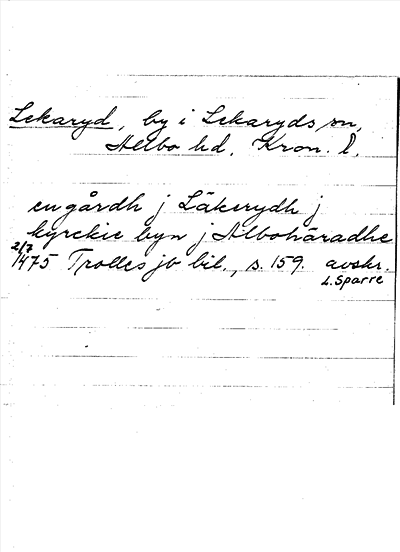 Lekaryd, by i Lekaryds sn,
Allbo hd. Kron. l.
en gårdh j Läkerydh j
kyrckie byn j Albohäradhe
2/7 1475 Trolles jb bil., s. 159. avskr.
L. Sparre